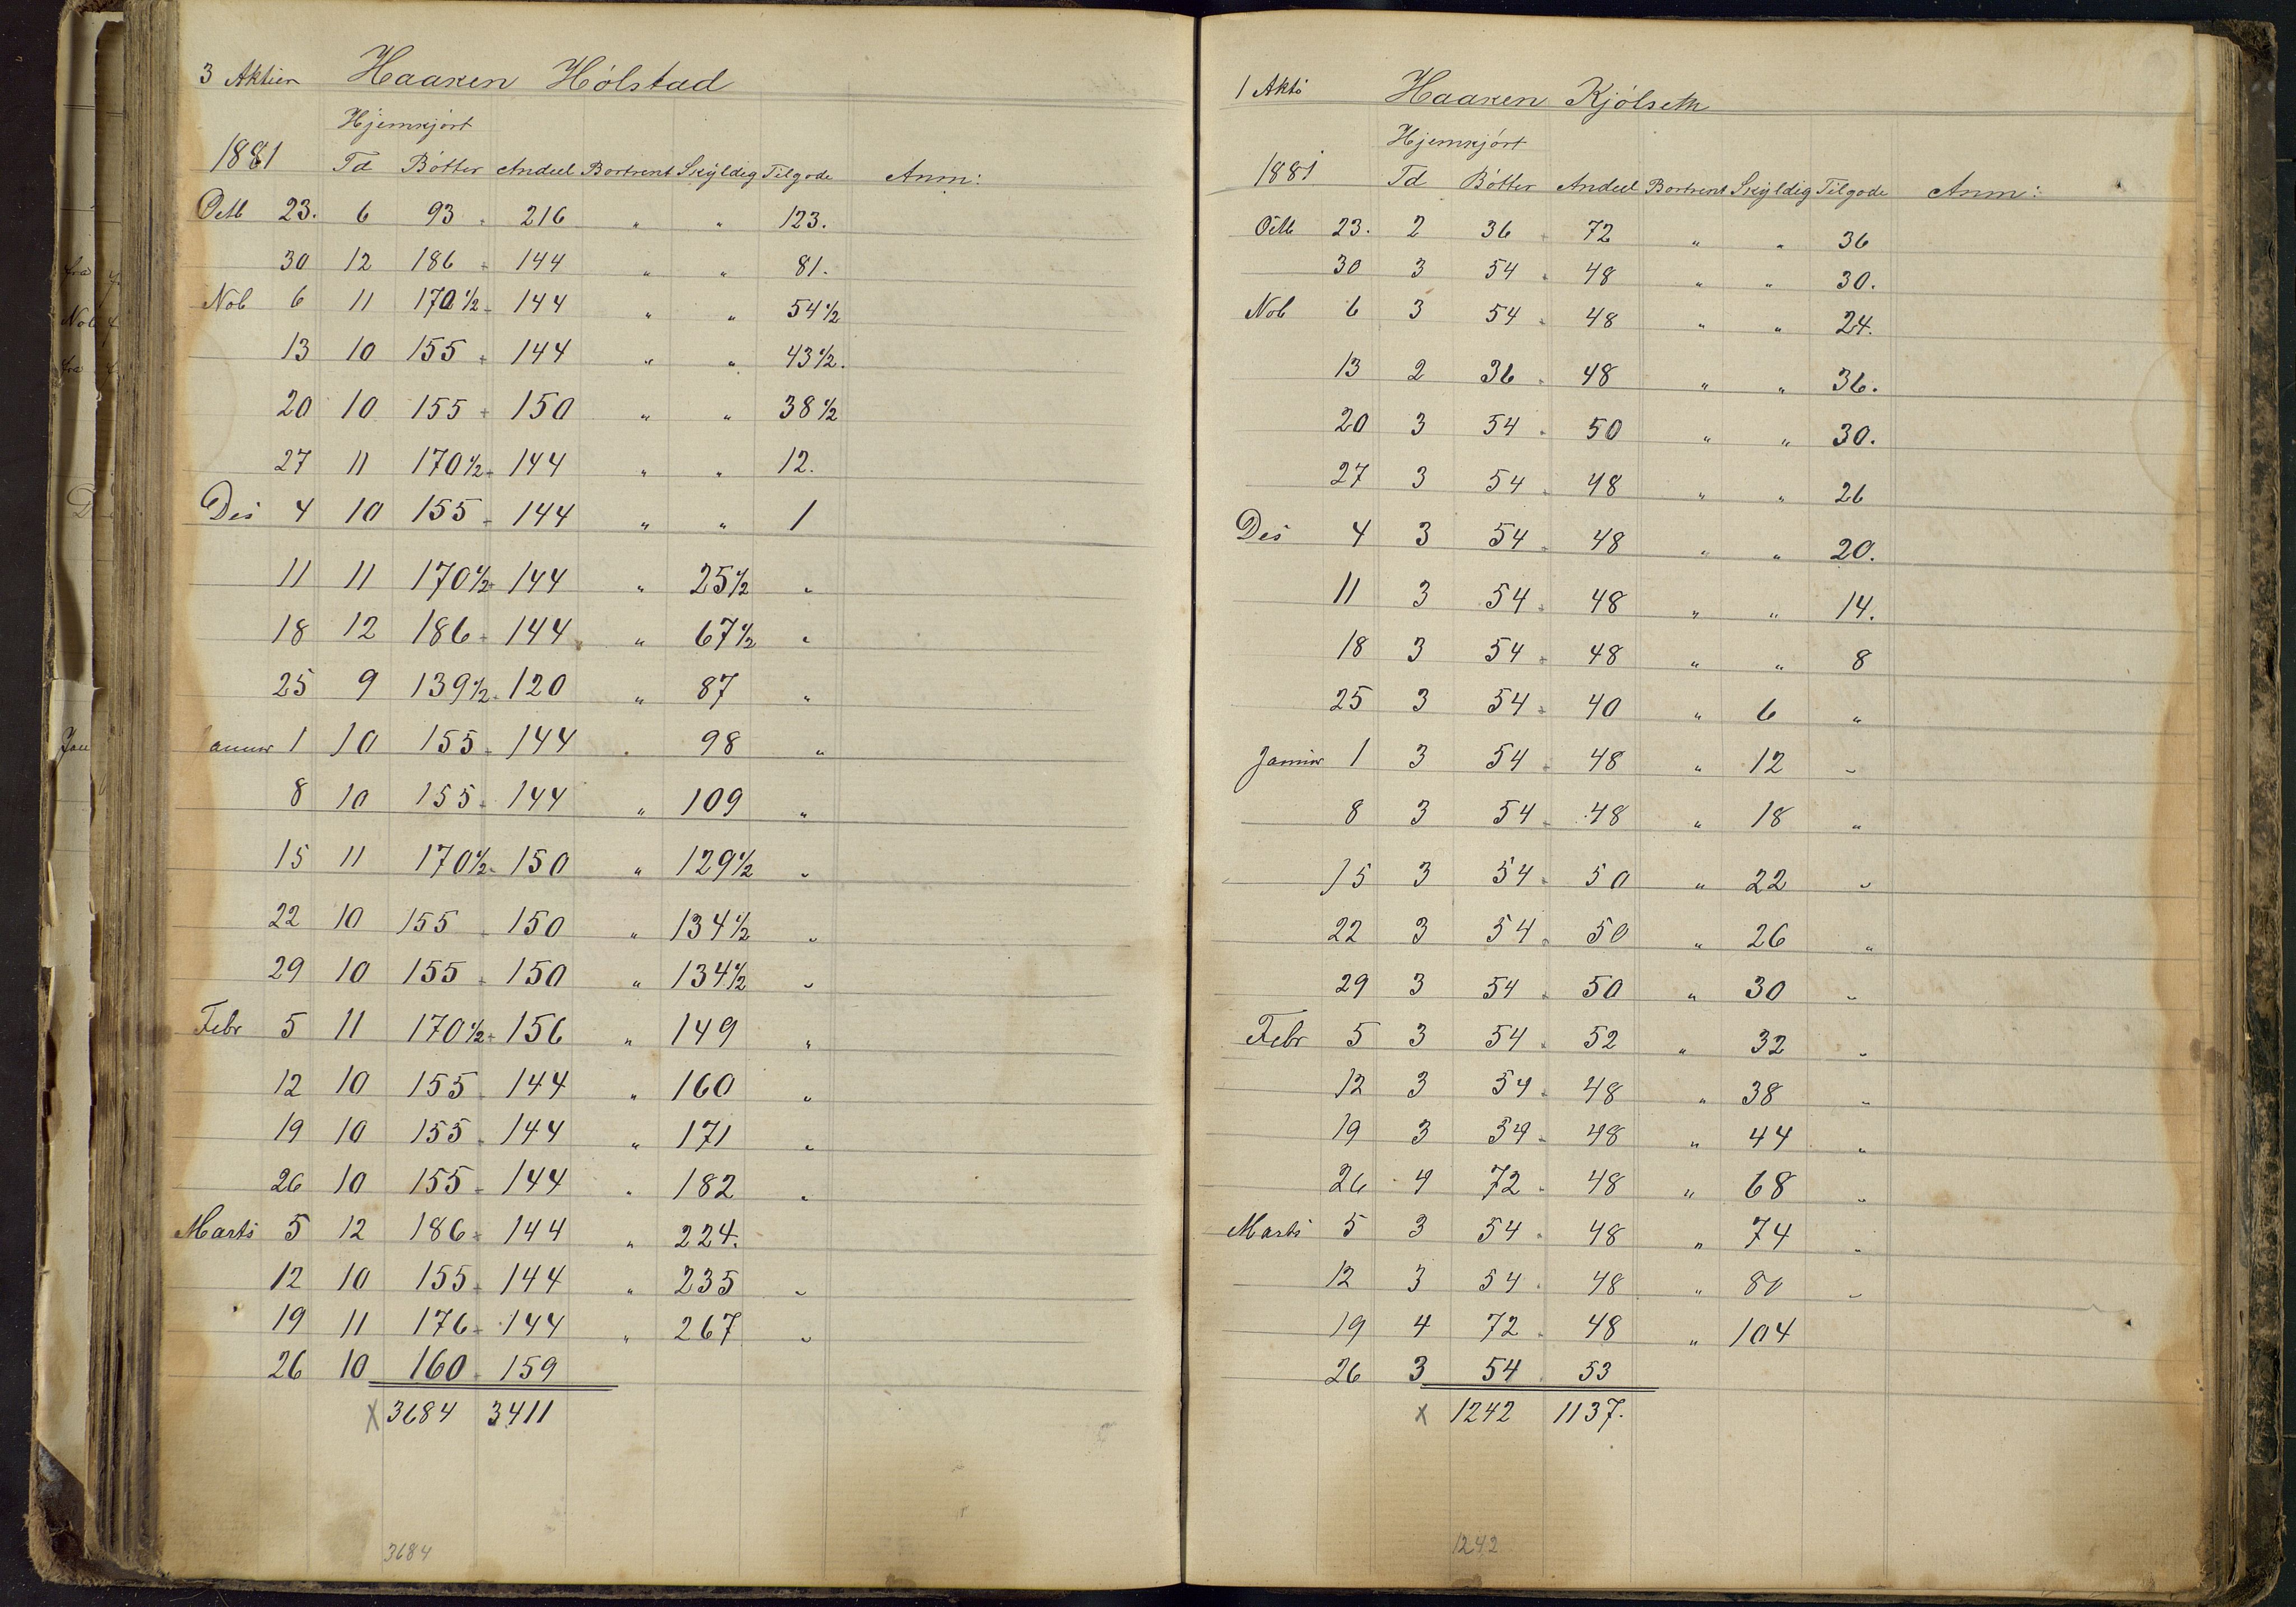 3 Aktier Haaken Hólstad
Hjemkjórt
1881 Td Bótter Andeel Bortrent Skÿldig Tilgode Anm:
Octb 23. 6 93 - 216 " " 123.
30 12 186 - 144 " " 81.
Nob 6 11 170 ½ - 144 " " 54 ½
13 10 155 - 144 " " 43 ½.
20 10 155 - 150 " " 38 ½
27 11 170 ½ - 144 " " 12.
Des 4 10 155 - 144 " " 1
11 11 170 ½ - 144 " 25 ½ "
18 12 186 - 144 " 67 ½ "
25 9 139 ½ - 120 " 87 "
Januar 1 10 155 - 144 " 98 "
8 10 155 - 144 " 109 "
15 11 170 ½ - 150 " 129 ½ "
22 10 155 - 150 " 134 ½ "
29 10 155 - 150 " 134 ½ "
Febr 5 11 170 ½ - 156 " 149 "
12 10 155 - 144 " 160 "
19 10 155 - 144 " 171 "
26 10 155 - 144 " 182 "
Marts 5 12 186 - 144 " 224.
12 10 155 - 144 " 235 "
19 11 176 - 144 " 267 "
26 10 160 - 159
X 3684 3411
3684
1 Akti Haaken Kjólseth
Hjemkjórt
1881 Td Bótter Andeel Bortrent Skÿldig Tilgode Anm:
Octb 23. 2 36 - 72 " " 36
30 3 54 - 48 " " 30.
Nob 6 3 54 - 48 " " 24.
13 2 36 - 48 " " 36.
20 3 54 - 50 " " 30.
27 3 54 - 48 " " 26
Des 4 3 54 - 48 " " 20.
11 3 54 - 48 " " 14.
18 3 54 - 48 " " 8
25 3 54 - 40 " 6 "
Januar 1 3 54 - 48 " 12 "
8 3 54 - 48 " 18 "
15 3 54 - 50 " 22 "
22 3 54 - 50 " 26 "
29 3 54 - 50 " 30 "
Febr 5 3 54 - 52 " 32 "
12 3 54 - 48 " 38 "
19 3 54 - 48 " 44 "
26 4 72 - 48 " 68 "
Marts 5 3 54 - 48 " 74 "
12 3 54 - 48 " 80 "
19 4 72 - 48 " 104
26 3 54 - 53
X 1242 1137.
1242